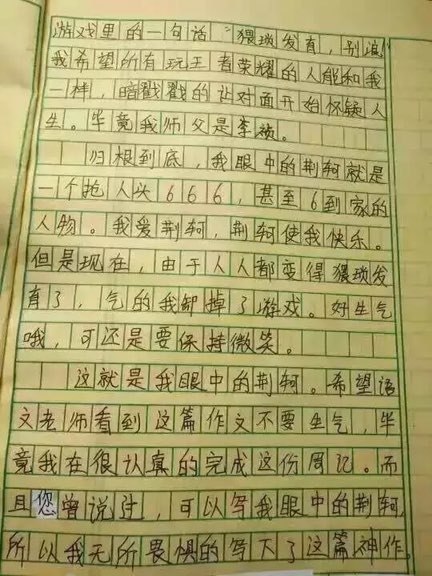 游戏里的一句话“猥琐发育，别浪
我希望所有玩王者荣耀的人能和我
一样，暗戳戳的让对面开始怀疑人
生。毕竟我师父是李祯。
归根到底，我眼中的荆轲就是
一个抢人头666，甚至6到家的
人物。我爱荆轲，荆轲使我快乐。
但是现在，由于人人都变得猥琐发
育了，气的我卸掉了游戏。好生气
哦，可还是要保持微笑。
这就是我眼中的荆轲。希望语
文老师看到这篇作文不要生气，毕
竟我在很认真的完成这份周记。而
且您曾说过，可以写我眼中的荆轲，
所以我无所畏惧的写下了这篇神作。